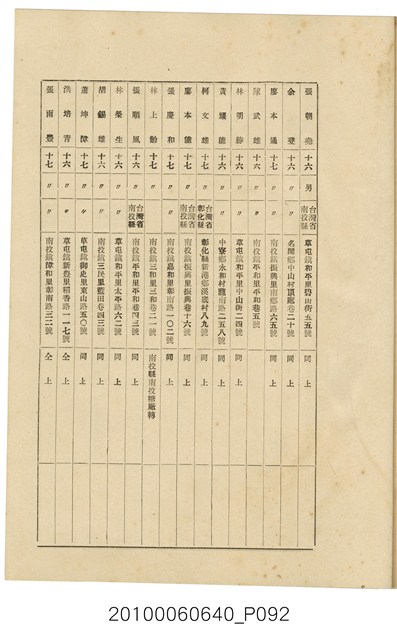 張朝堯 十六 男 台灣省南投縣 草屯鎮和平里碧山街五五號 同上
余 十六 〃 〃 名間鄉中山村頂廍巷二十號 同上
廖本通 十七 〃 〃 南投鎮振興里南鄉路六五號 同上
陳武雄 十六 〃 〃 南投鎮平和里平和巷五號 同上
林明 十六 〃 〃 草屯鎮和平里中山街二四號 同上
黃耀能 十六 〃 〃 中寮鄉永和村龍南路二五八號 同上
柯文雄 十七 〃 台灣省彰化縣 彰化縣新港鄉溪底村八九號 同上
廖本能 十七 〃 台灣省南投縣 南投鎮振興里振興巷十六號 同上
張慶和 十七 〃 〃 南投鎮嘉和里彰南路一〇二號 同上
林上 十七 〃 〃 南投鎮三和里三和巷二一號 南投縣南投糖廠轉
張順風 十六 〃 台灣省南投縣 南投鎮平和里平和巷四三號 同上
林榮生 十六 〃 〃 草屯鎮和平里太平路六二號 同上
胡錫雄 十六 〃 〃 南投鎮三民里藍田巷四三號 同上
蕭坤漳 十七 〃 〃 草屯鎮御史里東山路五〇號 同上
洪培青 十六 〃 〃 草屯鎮新豐里稻香路一一七號 仝上
張雨豐 十七 〃 〃 南投鎮漳和里彰南路三二號 仝上
20100060640_P092